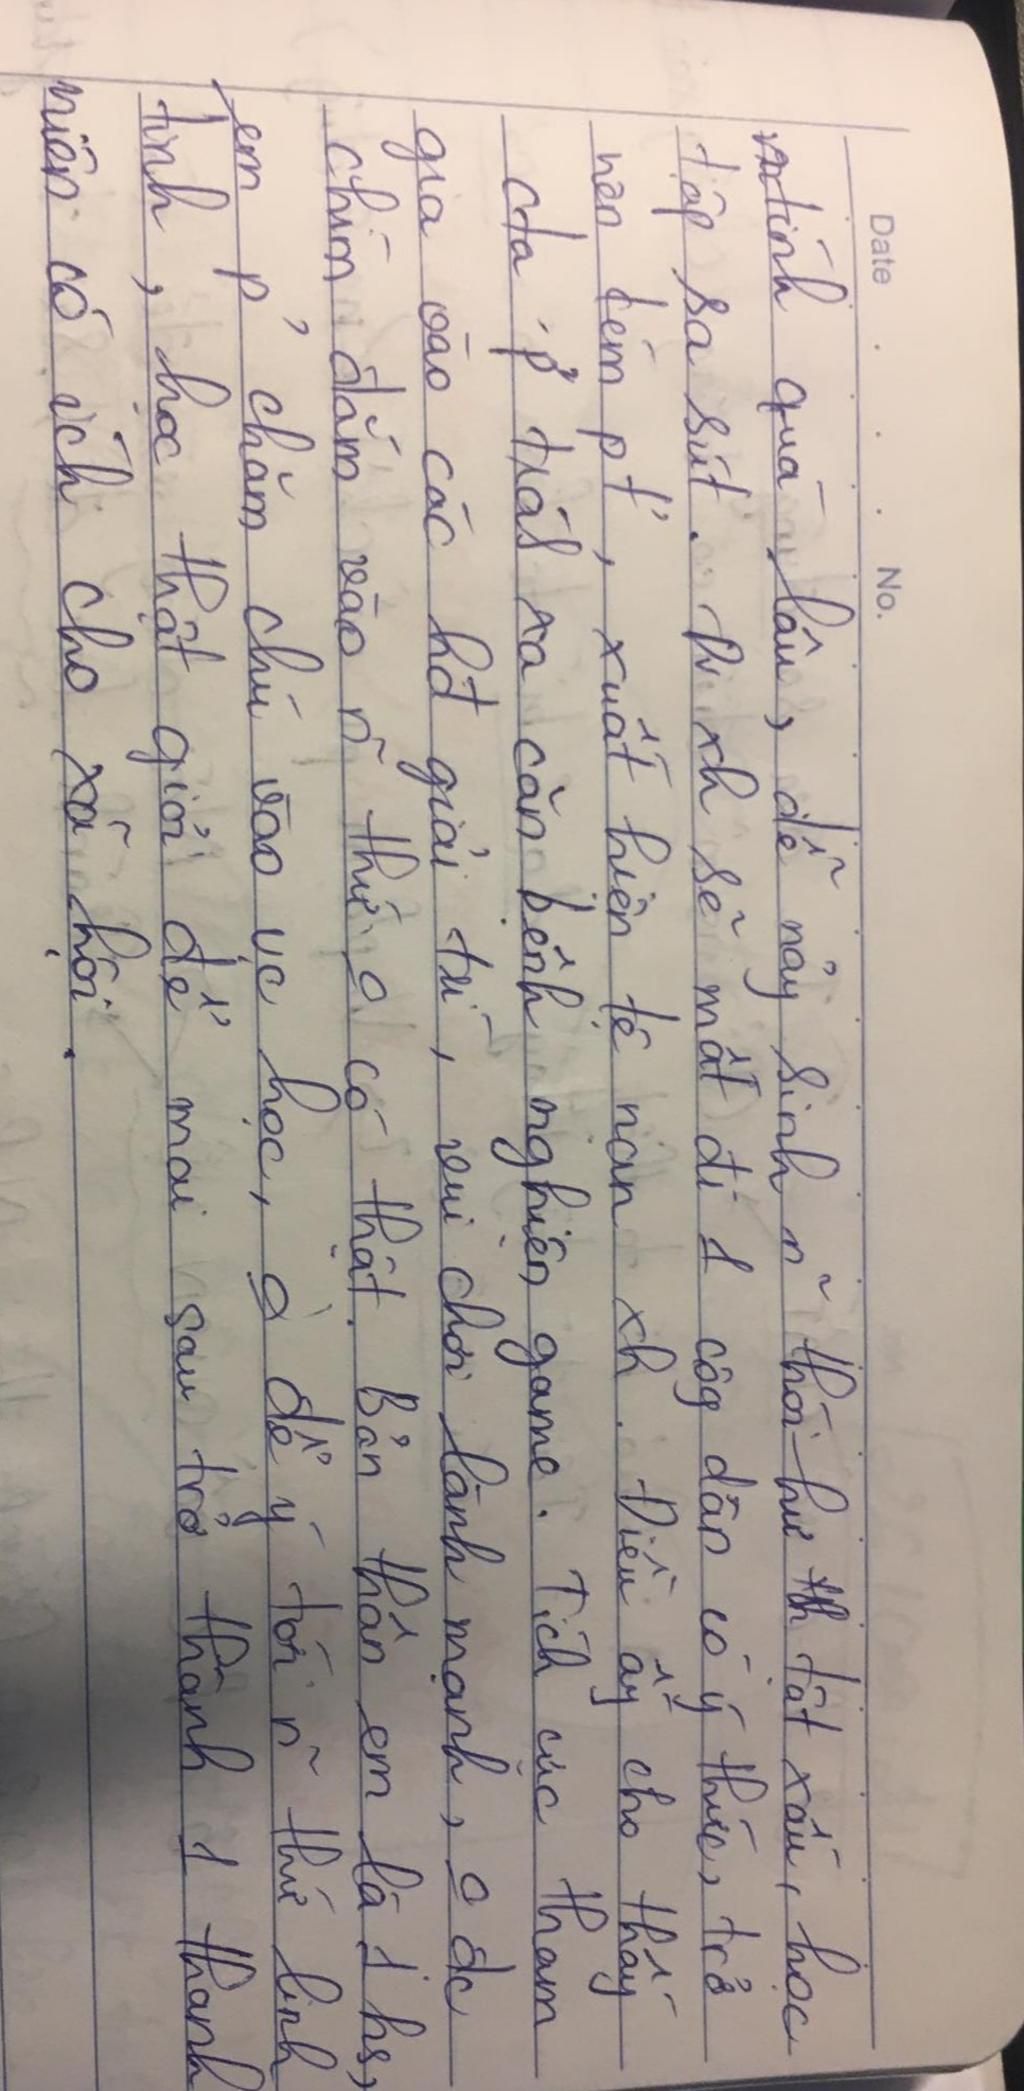 Date . . . No.
tính quá lâu, dễ nảy sinh n~ thói hư tật xấu, học
tập sa sút. Đv xh sẽ mất đi 1 côg dân có ý thức, trở
nên kém pt', xuất hiện tệ nạn xh. Điều ấy cho thấy
cta p? tránh xa căn bệnh nghiện game. Tích cực tham
gia vào các hđ giải trí, vui chơi lành mạnh, o đc
chìm đắm vào n~ thứ o có thật. Bản thân em là 1 hs,
em p? chăm chú vào vc học, o để ý tới n~ thứ linh
tinh, học thật giỏi để mai sau trở thành 1 thanh
niên có ích cho xã hội.